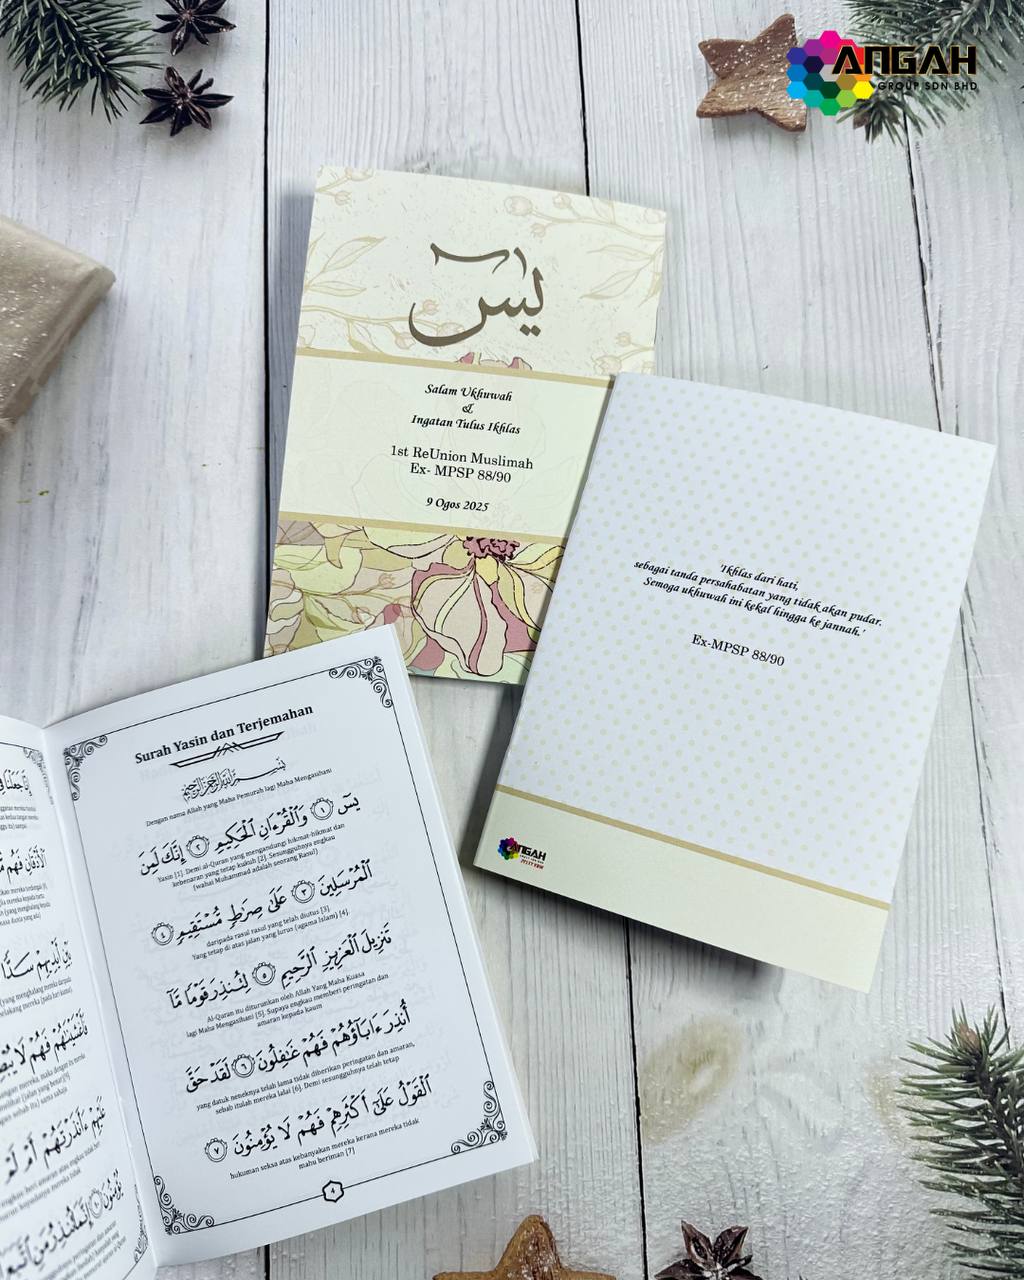 ANGAH
GROUP SDN BHD
يس
Salam Ukhuwah
&
Ingatan Tulus Ikhlas
1st ReUnion Muslimah
Ex- MPSP 88/90
9 Ogos 2025
'Ikhlas dari hati,
sebagai tanda persahabatan yang tidak akan pudar.
Semoga ukhuwah ini kekal hingga ke jannah.'
Ex-MPSP 88/90
ANGAH
Surah Yasin dan Terjemahan
بِسْمِ اللَّهِ الرَّحْمَٰنِ الرَّحِيمِ
Dengan nama Allah yang Maha Pemurah lagi Maha Mengasihani
يسٓ ١ وَٱلْقُرْءَانِ ٱلْحَكِيمِ ٢ إِنَّكَ لَمِنَ
Yasin [1]. Demi al-Quran yang mengandungi hikmat-hikmat dan
kebenaran yang tetap kukuh [2]. Sesungguhnya engkau
(wahai Muhammad adalah seorang Rasul)
ٱلْمُرْسَلِينَ ٣ عَلَىٰ صِرَٰطٍ مُّسْتَقِيمٍ ٤
daripada rasul rasul yang telah diutus [3]
Yang tetap di atas jalan yang lurus (agama Islam) [4].
تَنزِيلَ ٱلْعَزِيزِ ٱلرَّحِيمِ ٥ لِتُنذِرَ قَوْمًا مَّآ
Al-Quran itu diturunkan oleh Allah Yang Maha Kuasa
lagi Maha Mengasihani [5]. Supaya engkau memberi peringatan dan
amaran kepada kaum
أُنذِرَ ءَابَآؤُهُمْ فَهُمْ غَٰفِلُونَ ٦ لَقَدْ حَقَّ
yang datuk neneknya telah lama tidak diberikan peringatan dan amaran,
sebab itulah mereka lalai [6]. Demi sesungguhnya telah tetap
ٱلْقَوْلُ عَلَىٰٓ أَكْثَرِهِمْ فَهُمْ لَا يُؤْمِنُونَ ٧
hukuman seksa atas kebanyakan mereka kerana mereka tidak
mahu beriman [7]
4